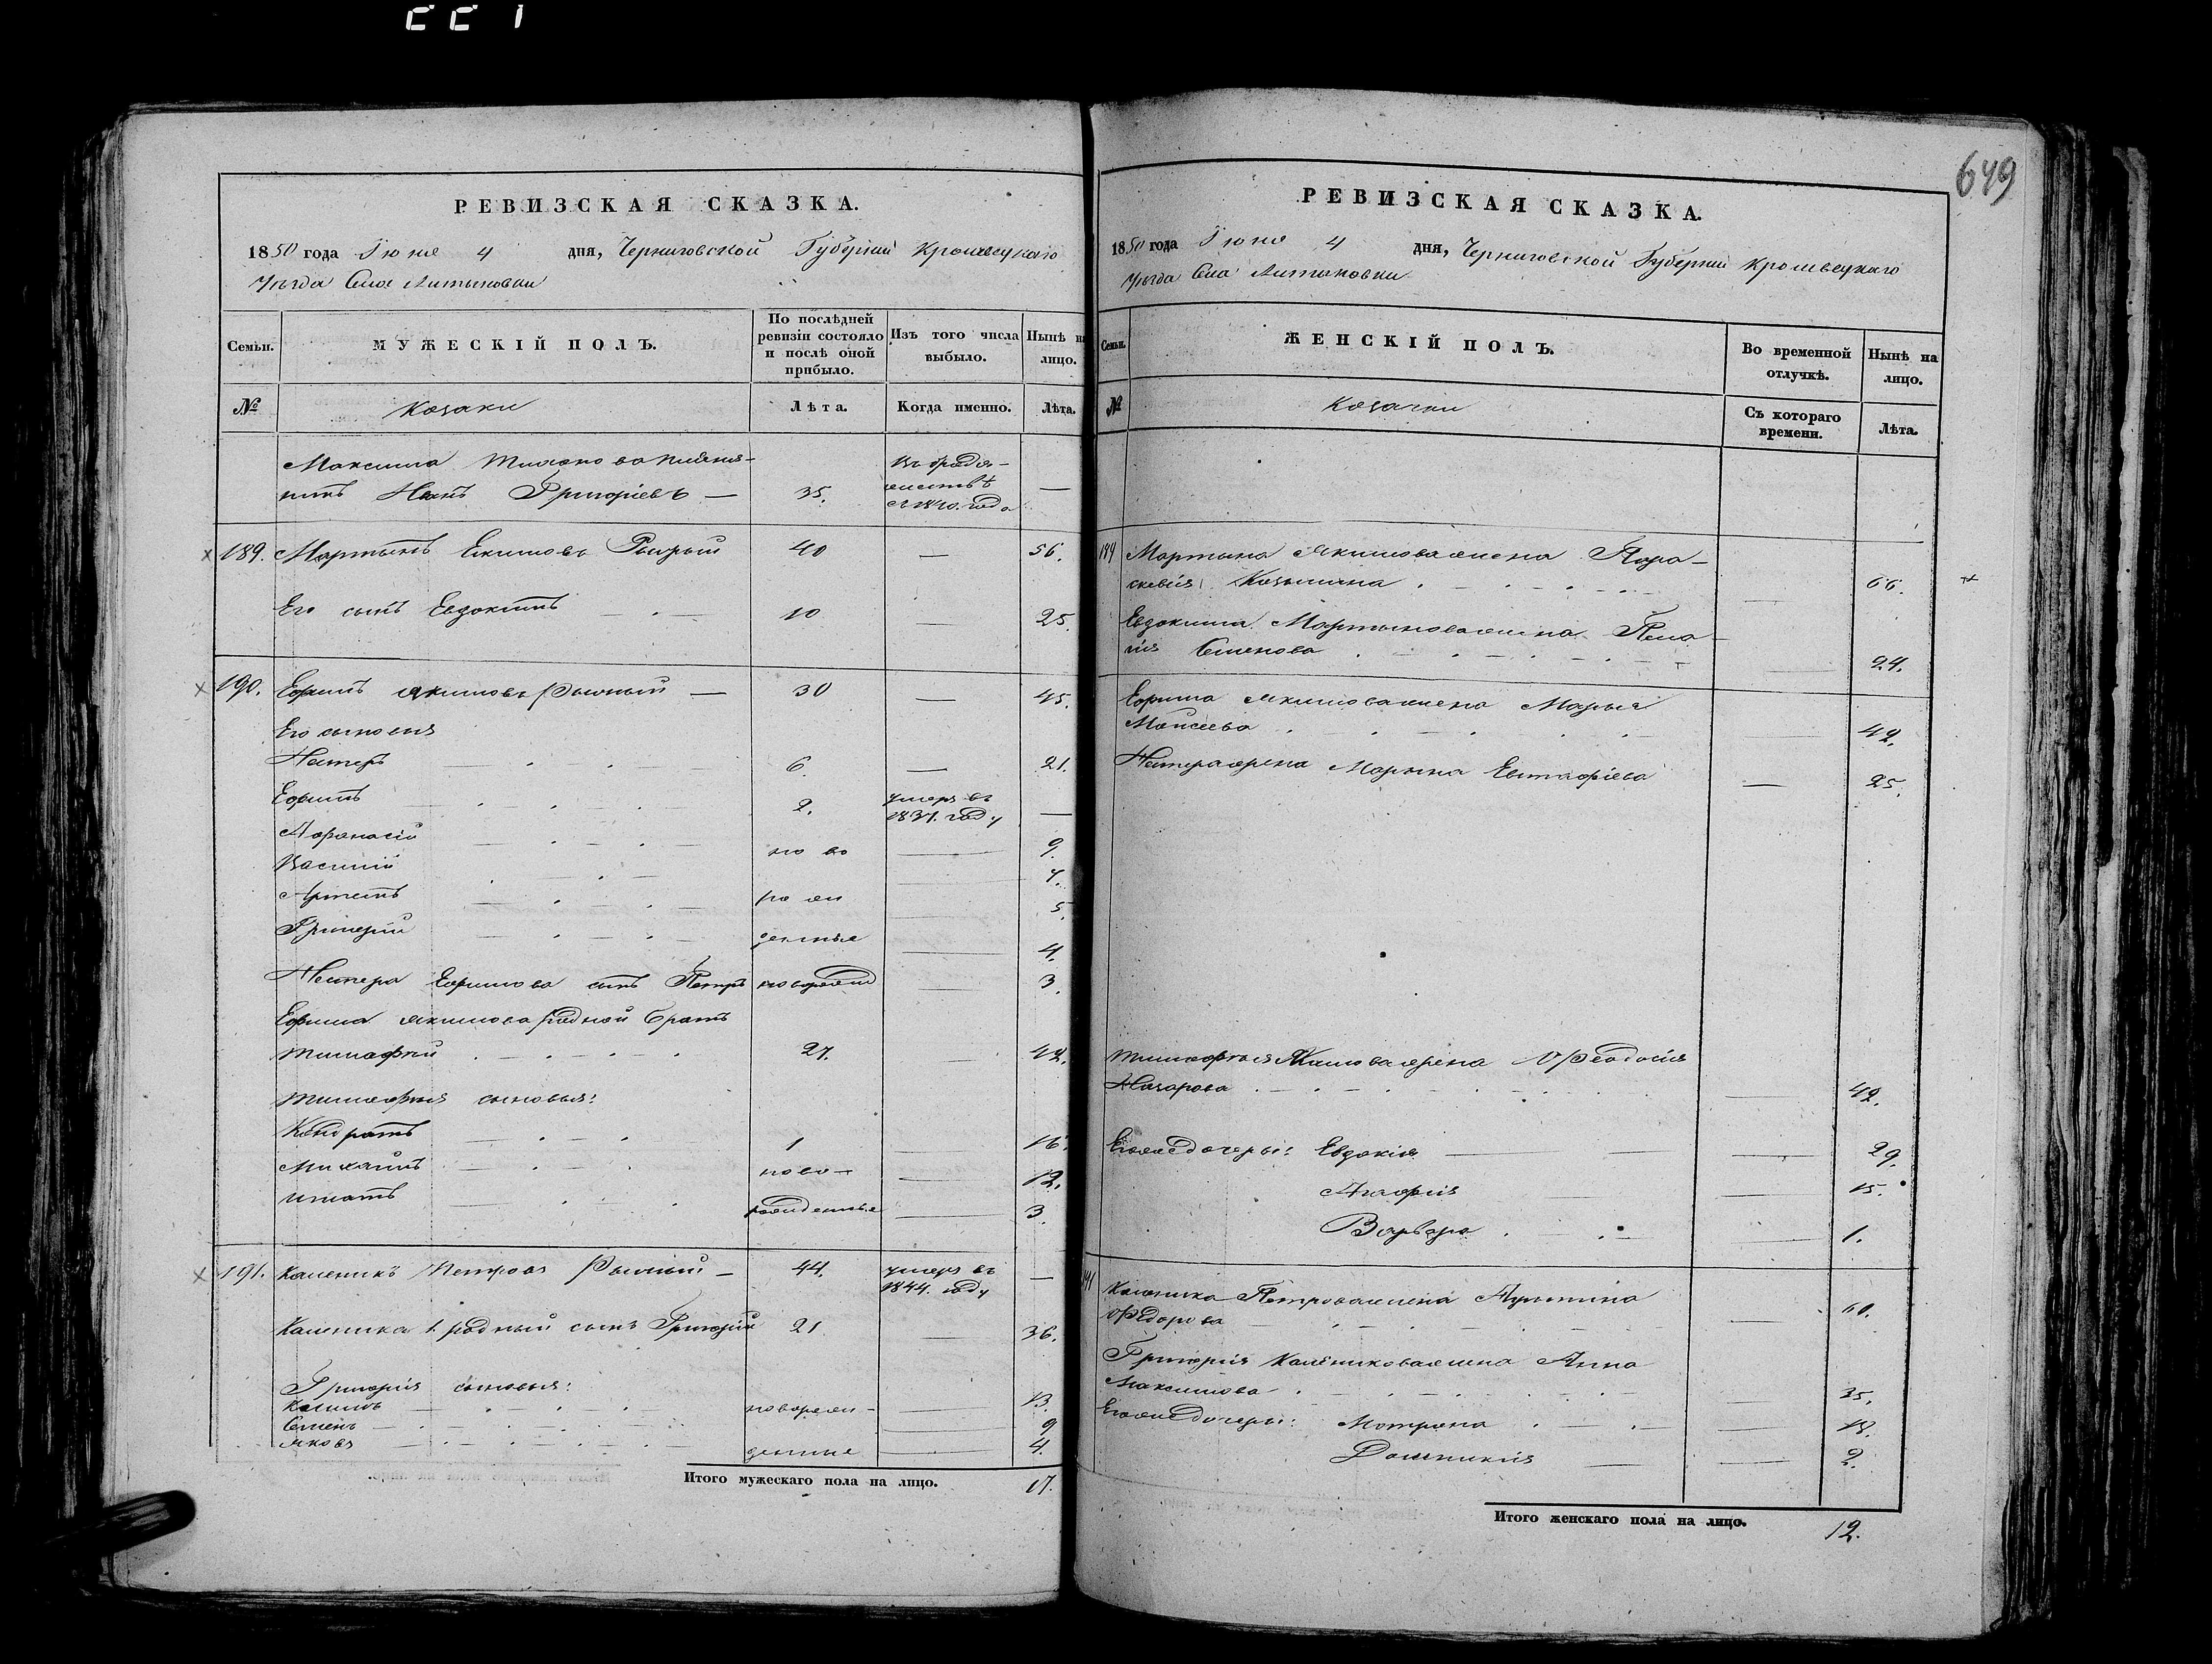 649
РЕВИЗСКАЯ СКАЗКА.
1850 года Іюня 4 дня, Черниговской Губерніи Кролевецкаго
Уѣзда Села Литвиновки
Семьи. МУЖЕСКІЙ ПОЛЪ. По послѣдней ревизіи состояло и послѣ оной прибыло. Изъ того числа выбыло. Нынѣ на лицо.
№ Козаки Лѣта. Когда именно. Лѣта.
Максима
Григоріевъ — 35. —
189. Мартынъ Екимовъ 40 — 56.
Его сынъ Евдокимъ 10 — 25.
190. Ефимъ Якимовъ — 30 — 45.
Его сыновья
Нестеръ 6. — 21.
Ефимъ 2. умеръ въ 1837. году —
Афонасій но во — 9.
Василій — 7.
Артемъ ро ж — 5
Григорій денные — 4.
Нестера Ефимова сынъ Петръ новорожд — 3.
Ефима Якимова родной братъ
Тимофѣй 27. — 42.
Тимофѣя сыновья:
Кондратъ 1 — 16.
Михаилъ ново- — 12.
Игнатъ рожденные — 3.
191. Каленикъ Петровъ — 44. умеръ въ 1844. году —
Каленика 1. родный сынъ Григорій 21 — 36.
Григорія сыновья:
новорож- — 13.
Семенъ — 9
Яковъ денные — 4.
Итого мужескаго пола на лицо. 17.
РЕВИЗСКАЯ СКАЗКА.
1850 года Іюня 4 дня, Черниговской Губерніи Кролевецкаго
Уѣзда Села Литвиновки
Семьи. ЖЕНСКІЙ ПОЛЪ. Во временной отлучкѣ. Нынѣ на лицо.
№ Козачки Съ котораго времени. Лѣта.
Мартына Якимова жена Пара-
скевія Козьмина — 66.
Евдокима Мартынова жена Пела-
гія Семенова — 24.
Ефима Якимова жена Марья
Моисеева — 42.
Нестера жена Марина Евстафіева — 25.
Тимофѣя Якимова жена Феодосія
Назарова — 42.
Его же дочери: Евдокія — 29.
Агафія — 15.
Варвара — 1.
Каленика Петрова жена
Федорова — 60.
Григорія Каленикова жена Анна
Максимова — 35.
Его же дочери: Мотрона — 18.
Домникія — 2.
Итого женскаго пола на лицо. 12.